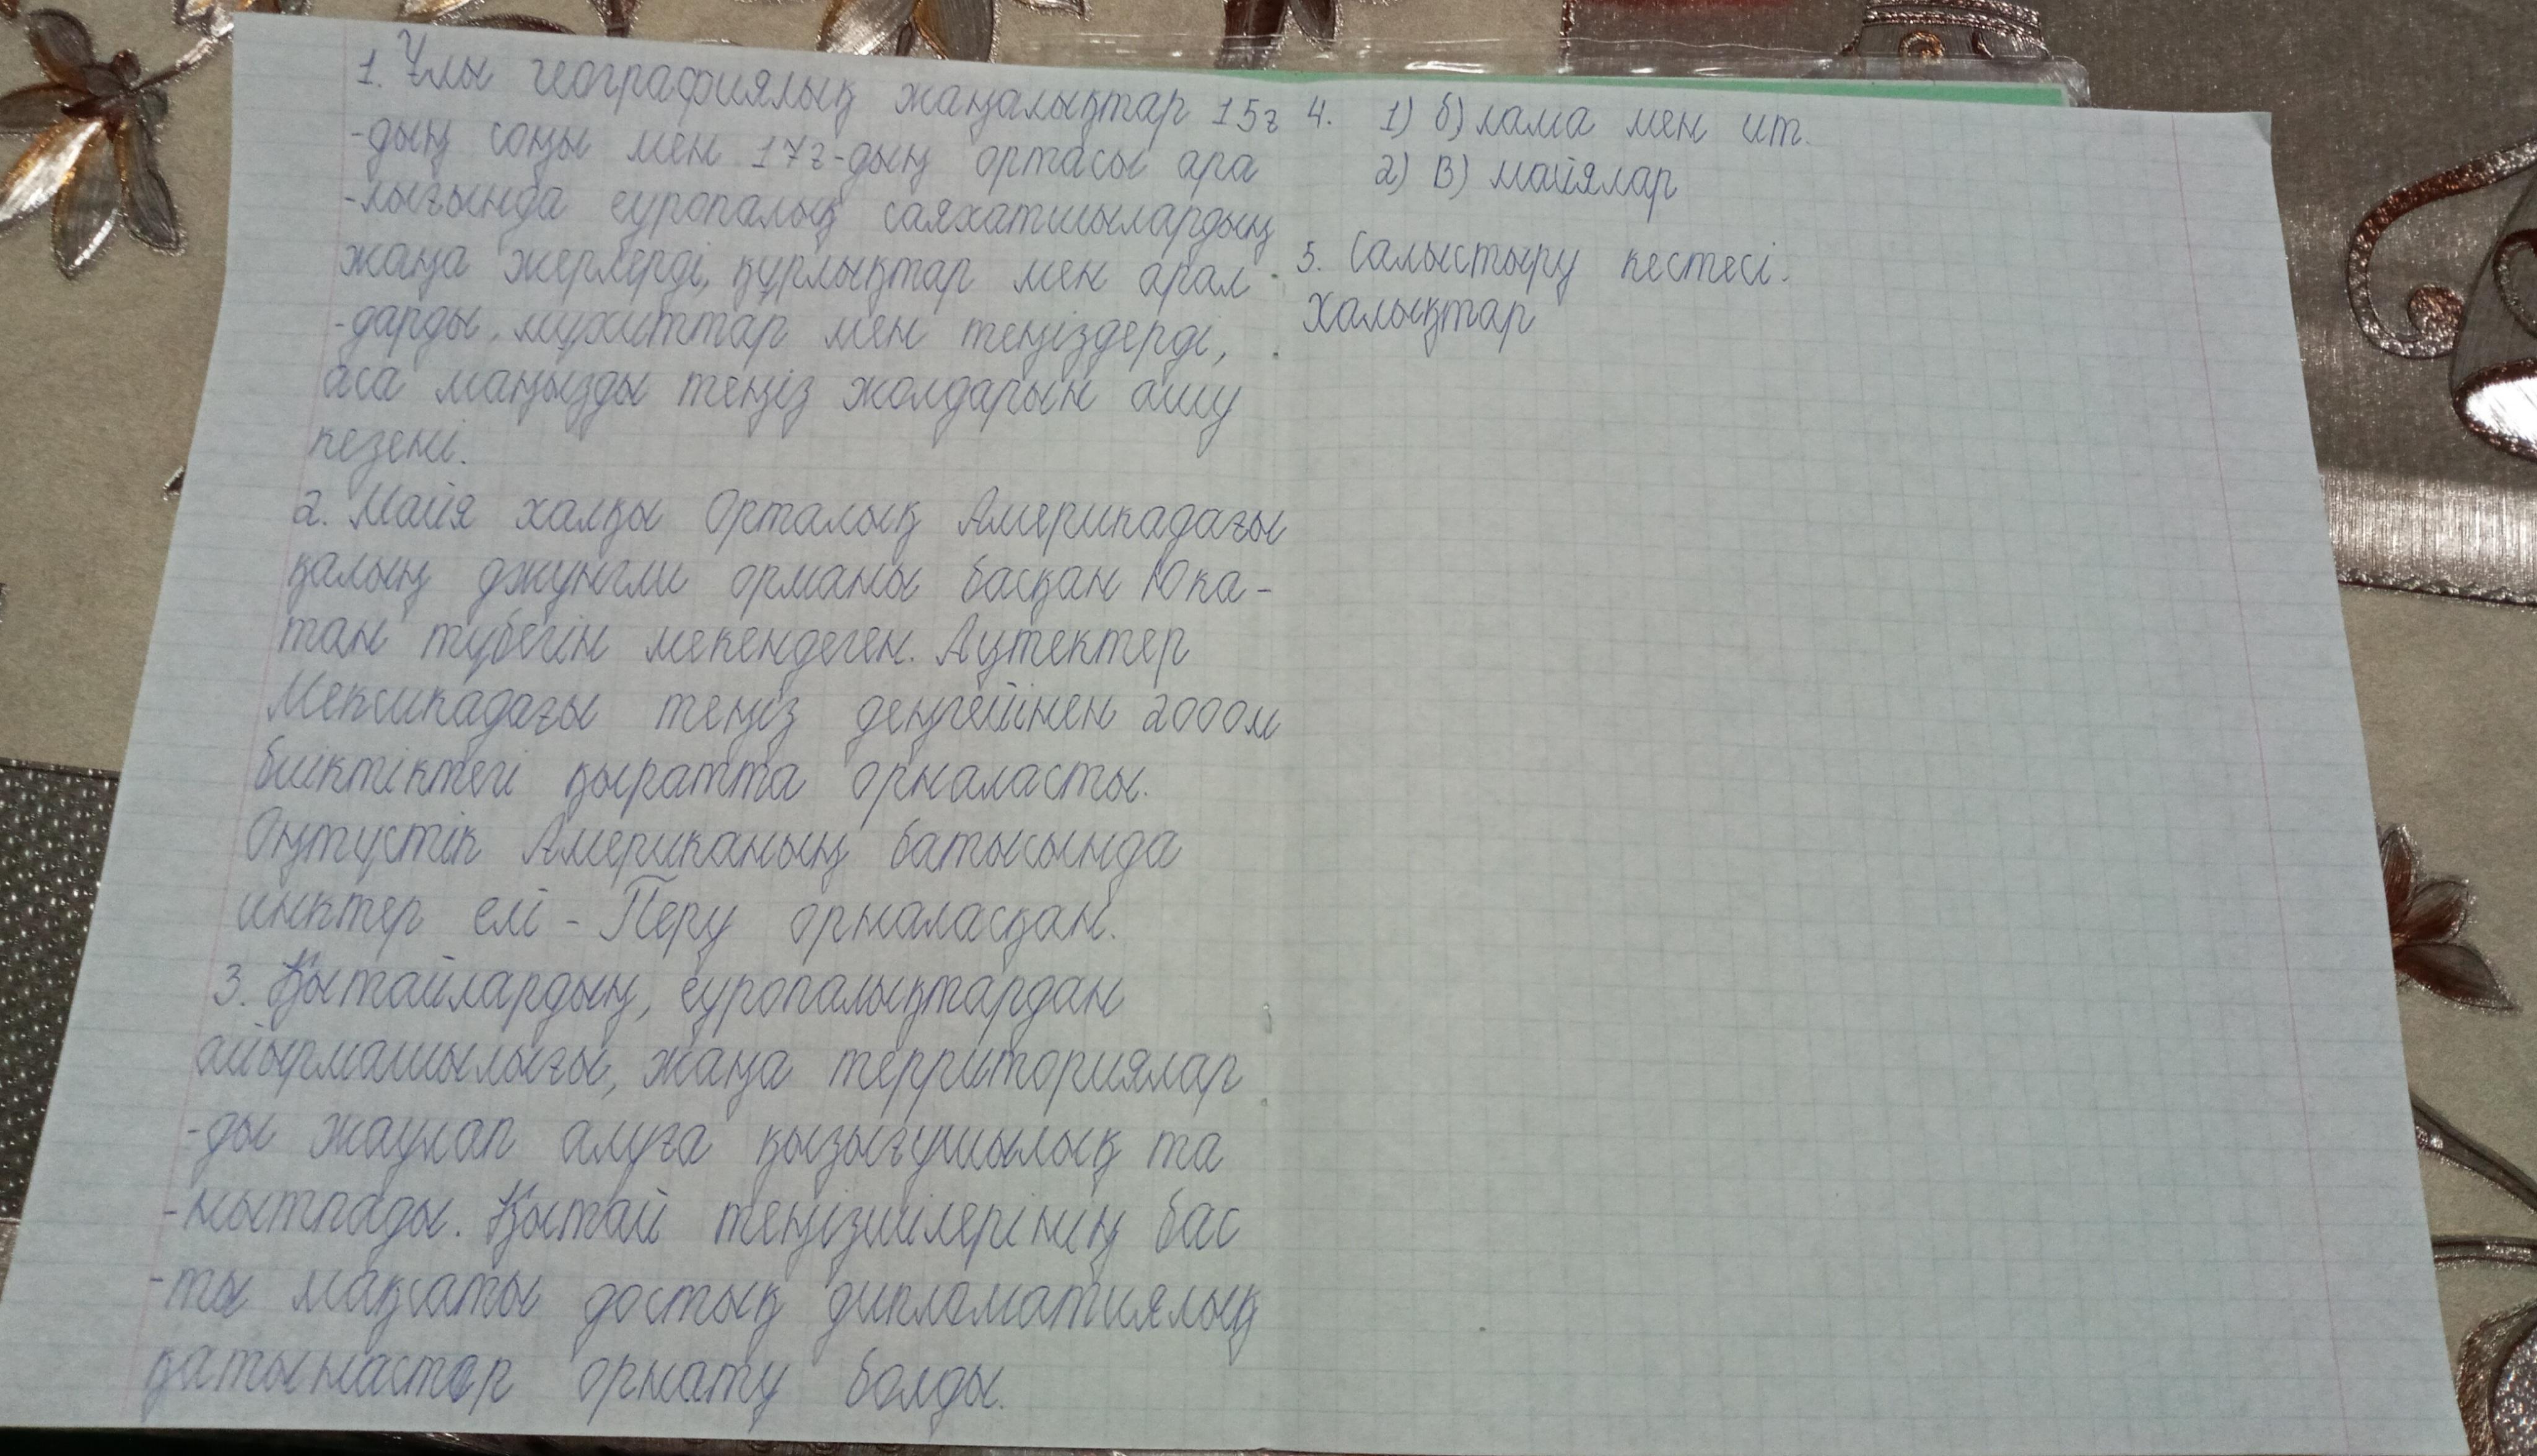 1. Ұлы географиялық жаңалықтар 15ғ
-дың соңы мен 17ғ-дың ортасы ара
-лығында еуропалық саяхатшылардың
жаңа жерлерді, құрлықтар мен арал
-дарды, мұхиттар мен теңіздерді,
аса маңызды теңіз жолдарын ашу
кезені.
2. Майя халқы Орталық Америкадағы
қалың джунгли орманы басқан Юка-
тан түбегін мекендеген. Ацтектер
Мексикадағы теңіз деңгейінен 2000м
биіктіктегі қыратта орналасты.
Оңтүстік Американың батысында
инктер елі - Перу орналасқан.
3. Қытайлардың, еуропалықтардан
айырмашылығы, жаңа территориялар
-ды жаулап алуға қызығушылық та
-нытпады. Қытай теңізшілерінің бас
-ты мақсаты достық дипломатиялық
қатынастар орнату болды.
4. 1) б) лама мен ит.
2) В) майялар
5. Салыстыру кестесі.
Халықтар